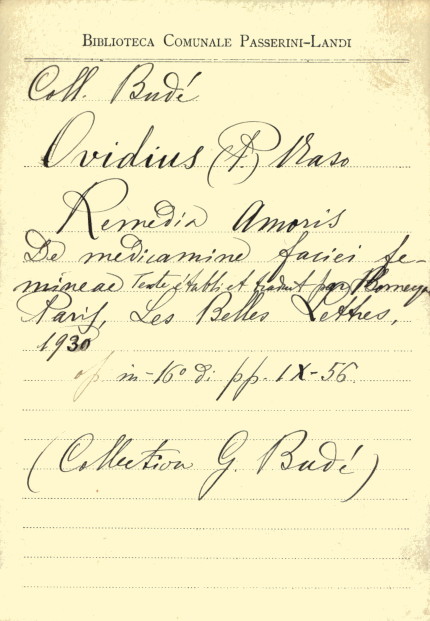 BIBLIOTECA COMUNALE PASSERINI-LANDI
Coll. Budé
Ovidius (P.) Naso
Remedia Amoris
De medicamine faciei fe-
mineae Texte établi et traduit par Bornecque
Paris, Les Belles Lettres,
1930
op in-16° di pp. IX-56.
(Collection G. Budé)